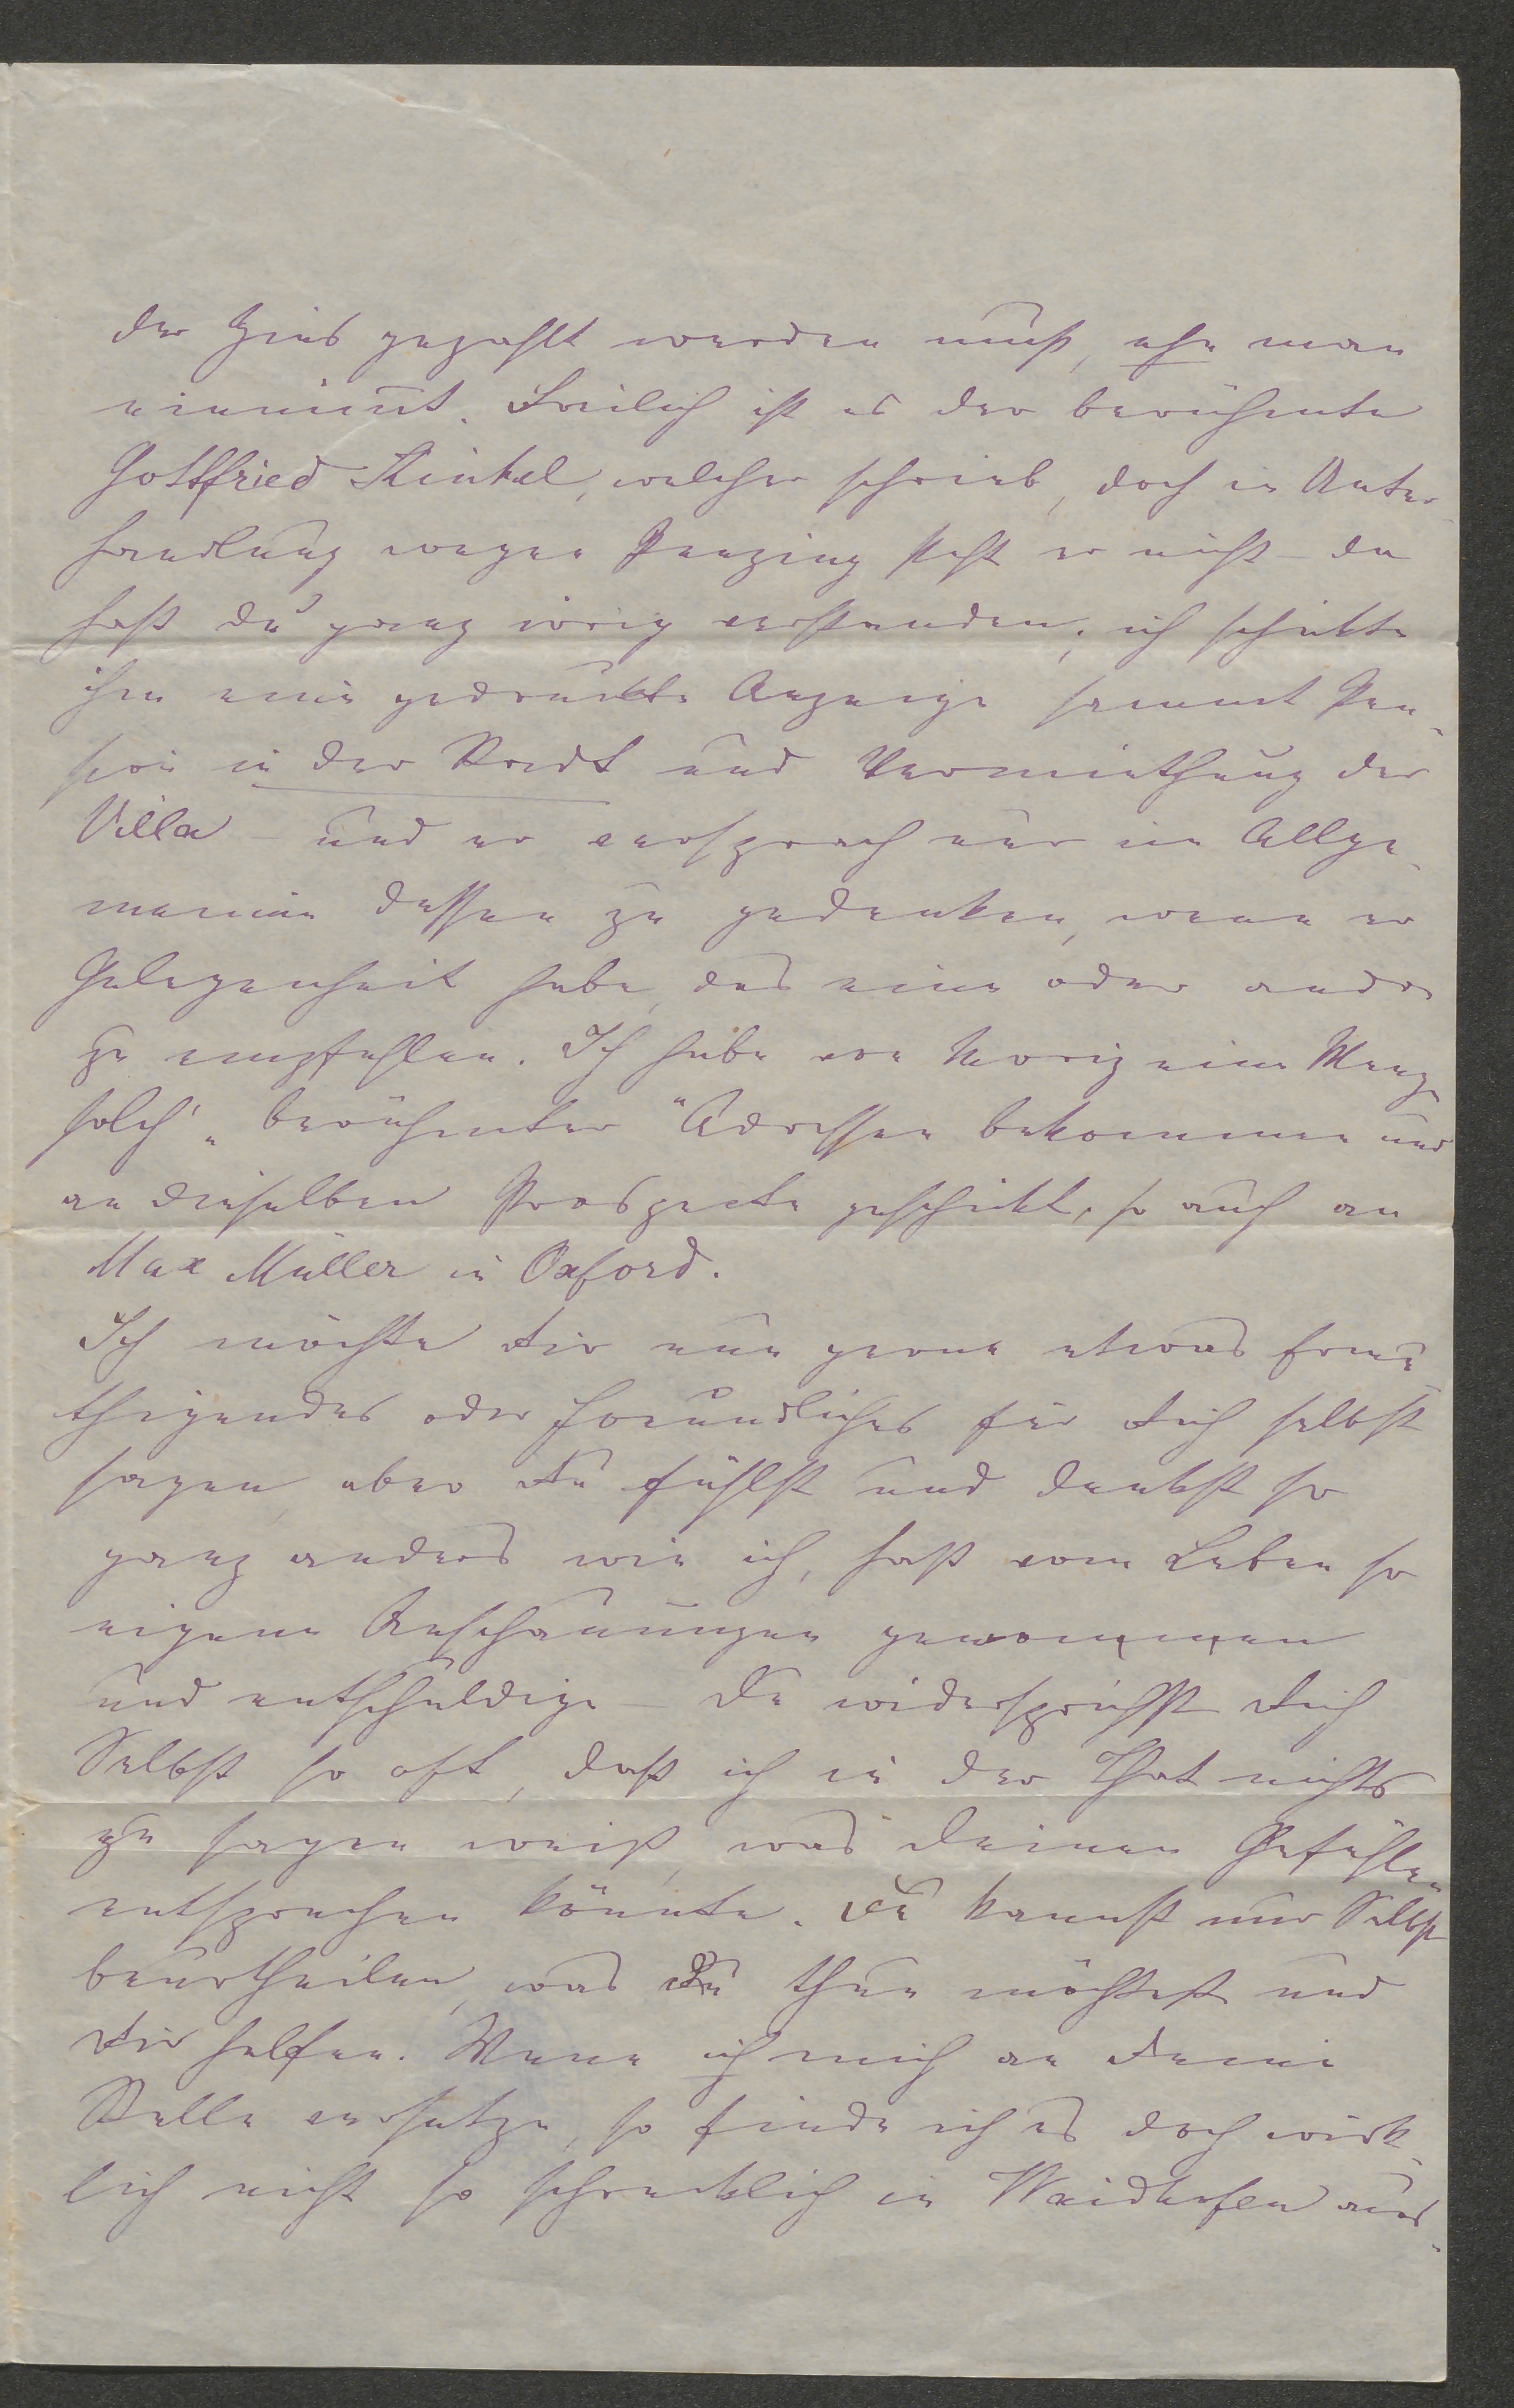 der Zins gezahlt werden muß, ehe man
einnimmt. Freilich ist es der berühmte
Gottfried Kinkel, welcher schrieb, doch in Unter-
handlung wegen Penzing steht er nicht – da
hast du ganz irrig verstanden; ich schickte
ihm eine gedruckte Anzeige sammt Pen-
sion in der Stadt und Vermiethung der
Villa – und er versprach nur im Allge-
meinen dessen zu gedenken, wenn er
Gelegenheit habe, das eine oder andre
zu empfehlen. Ich habe von Moriz eine Menge
solch' „berühmter" Adressen bekommen und
an dieselben Prospecte geschickt, so auch an
Max Müller in Oxford.
Ich möchte Dir nun gerne etwas
oder freundliches für Dich selbst
sagen, aber Du fühlst und denkst so
ganz anders wie ich, hast vom Leben so
eigene Anschauungen gewonnen
und entschuldige – Du widersprichst Dich
Selbst so oft, daß ich in der That nichts
zu sagen weiß, was Deinen Gefühlen
entsprechen könnte. Du kannst nur Selbst
beurtheilen, was Du thun möchtest und
Dir helfen. Wenn ich mich an Deine
Stelle versetze, so finde ich es doch wirk-
lich nicht so schrecklich in Waidhofen aus-